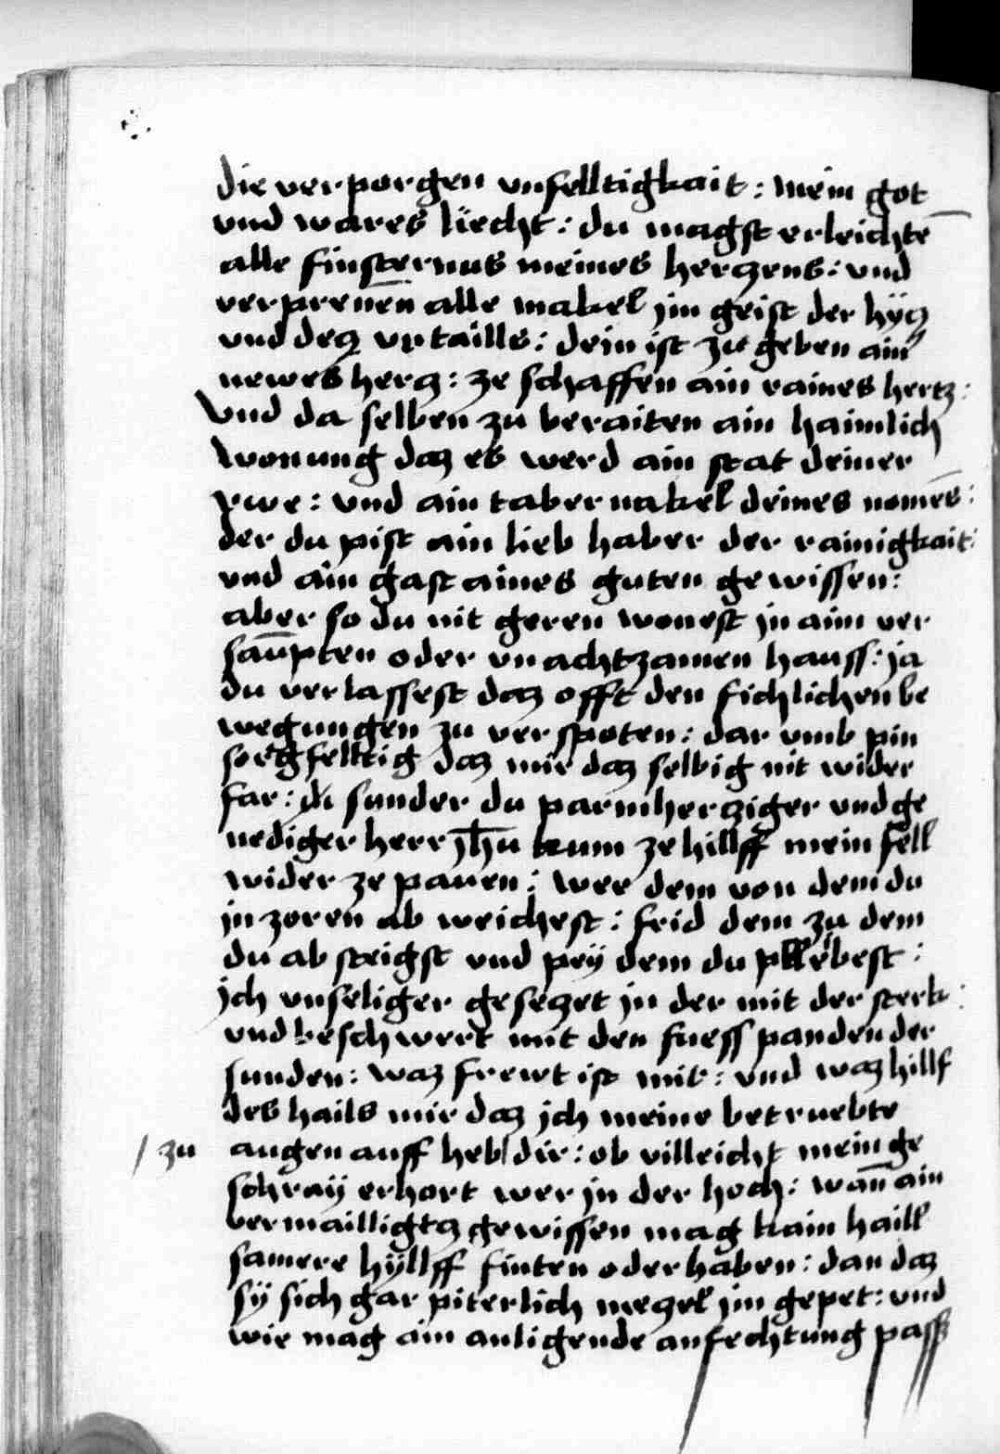 die verporgen vnselltigkait : mein got
vnd wares liecht : du magst erleichtē
alle finsternus meines herczens : vnd
verprenēn alle makel jm geist der hÿcz
vnd decz vrtaills : dein ist zu geben ain
newes hercz : ze schaffen ain raines hertz :
Vnd da selben zu beraiten ain haimlich
wonung daz es werd ain stat deiner
rwe : vnd ain tabernakel deines nomēs :
der du pist ain lieb haber der rainigkait :
vnd ain gast aines guten gewissen :
aber so du nit geren wonest jn aim ver
saūpten oder vnachtzamen hauss : ja
du verlassest daz offt den fichlichen be
wegungen zu verspoten : dar vmb pin
sorgfelltig daz mir daz selbig nit wider
far : sunder du parmhercziger vnd ge
nediger herr jhū kum ze hillff mein fell
wider ze pauen : wee dem von dem du
jn zoren ab weichest : frid dem zu dem
du ab steigst vnd pey dem du plebest :
jch vnseliger geseczet jn der mit der sterk :
vnd beschwert mit den fuess panden der
sunden : waz frewt ist mit : vnd waz hillf
des hails mir daz jch meine betruebte
/ zu augen auff heb / dir : ob villeicht mein ge
schray erhort wer jn der hoch : wan̄ ain
vermailligtz gewissen mag kain haill
samere hÿllff finten oder haben : dan daz
sÿ sich gar piterlich meczel jm gepet : vnd
wie mag ain anligende anfechtung pass